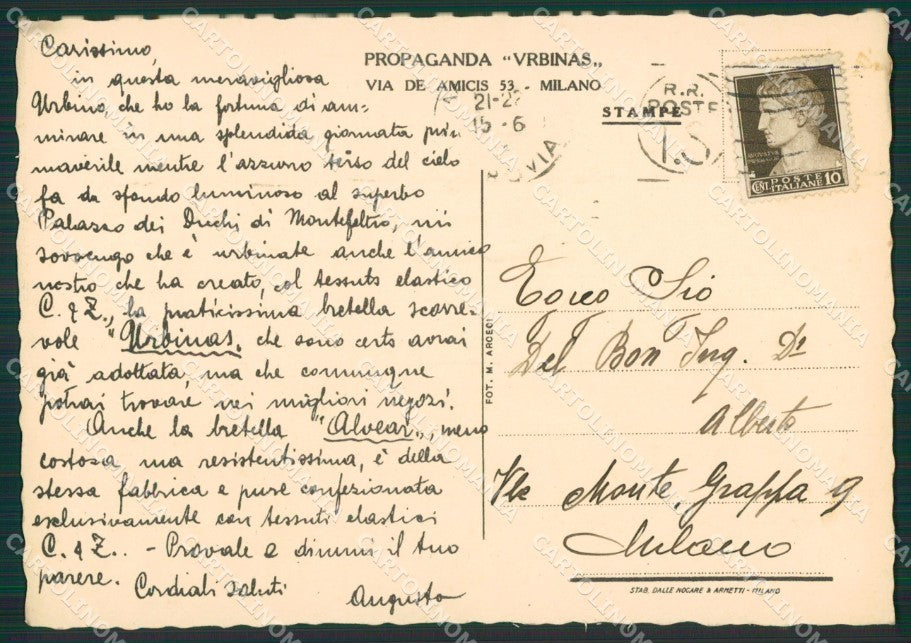 Carissimo,
in questa meravigliosa
Urbino che ho la fortuna di am-
mirare in una splendida giornata pri-
maverile mentre l'azzurro terso del cielo
fa da sfondo luminoso al superbo
Palazzo dei Duchi di Montefeltro, mi
sovvengo che è urbinate anche l'amico
nostro che ha creato, col tessuto elastico
C. & Z., la praticissima bretella scorre-
vole "Urbinas„ che sono certo avrai
già adottata, ma che comunque
potrai trovare nei migliori negozi.
Anche la bretella "Alvear„, meno
costosa ma resistentissima, è della
stessa fabbrica e pure confezionata
esclusivamente con tessuti elastici
C. & Z.. - Provale e dimmi il tuo
parere.
Cordiali saluti
Augusto
PROPAGANDA "VRBINAS„
VIA DE AMICIS 53 - MILANO
STAMPE
21-2
15-6
VIA
R.R.
POSTE
CENT. POSTE ITALIANE 10
FOT. M. ARCECI
Del Bon Ing. Dr
Alberto
Vle Monte Grappa 9
Milano
STAB. DALLE NOGARE & ARMETTI - MILANO
CARTOLINOMANIA